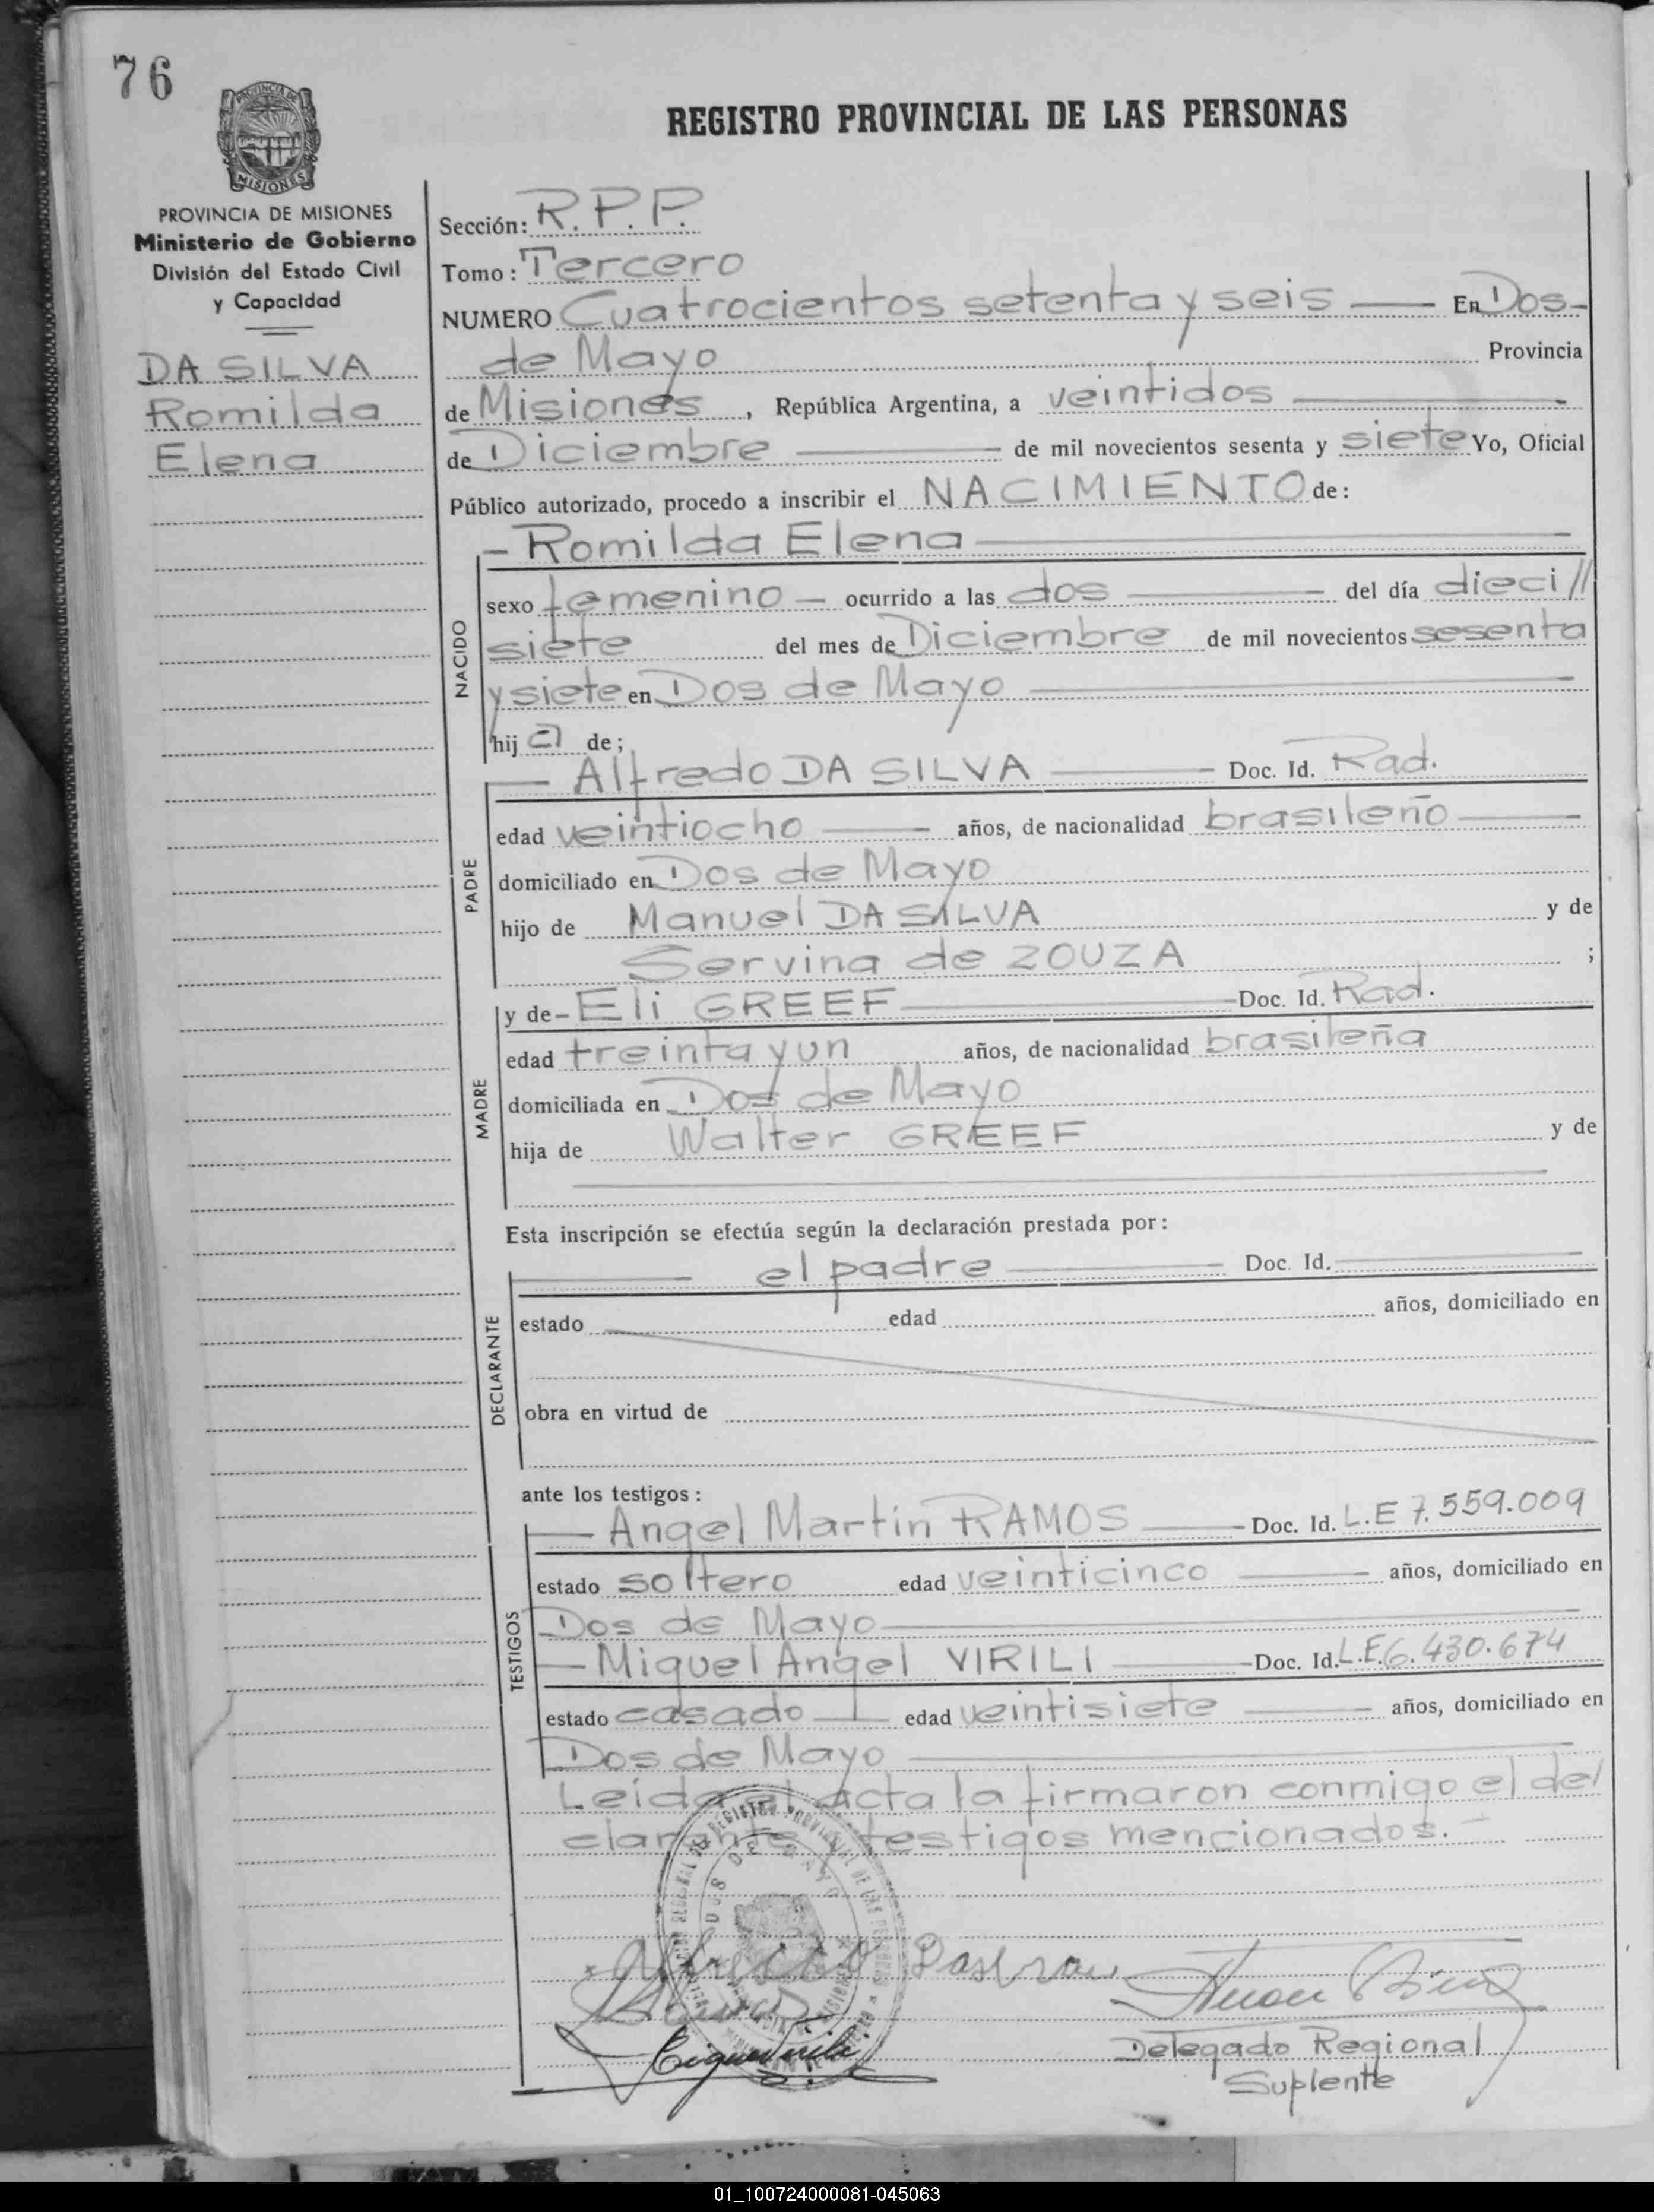 76
MISIONES
PROVINCIA DE MISIONES
Ministerio de Gobierno
División del Estado Civil
y Capacidad
DA SILVA
Romilda
Elena
REGISTRO PROVINCIAL DE LAS PERSONAS
Sección: R.P.P.
Tomo: Tercero
NUMERO Cuatrocientos setenta y seis — En Dos
de Mayo Provincia
de Misiones, República Argentina, a veintidos
de Diciembre de mil novecientos sesenta y siete Yo, Oficial
Público autorizado, procedo a inscribir el NACIMIENTO de:
- Romilda Elena
NACIDO
sexo femenino — ocurrido a las dos — del día dieci//
siete del mes de Diciembre de mil novecientos sesenta
y siete en Dos de Mayo
hija de;
PADRE
Alfredo DA SILVA — Doc. Id. Rad.
edad veintiocho — años, de nacionalidad brasileño
domiciliado en Dos de Mayo
hijo de Manuel DA SILVA y de
Servina de ZOUZA ;
MADRE
y de - Eli GREEF — Doc. Id. Rad.
edad treinta y un años, de nacionalidad brasileña
domiciliada en Dos de Mayo
hija de Walter GREEF y de
Esta inscripción se efectúa según la declaración prestada por:
DECLARANTE
el padre — Doc. Id.
estado edad años, domiciliado en
obra en virtud de
ante los testigos:
TESTIGOS
Angel Martin RAMOS — Doc. Id. L.E 7.559.009
estado soltero edad veinticinco — años, domiciliado en
Dos de Mayo
Miguel Angel VIRILI — Doc. Id. L.E.6.430.674
estado casado — edad veintisiete — años, domiciliado en
Dos de Mayo
Leida el acta la firmaron conmigo el de/
clarante testigos mencionados.-
DOS DE MAYO
Delegado Regional
Suplente
01_100724000081-045063